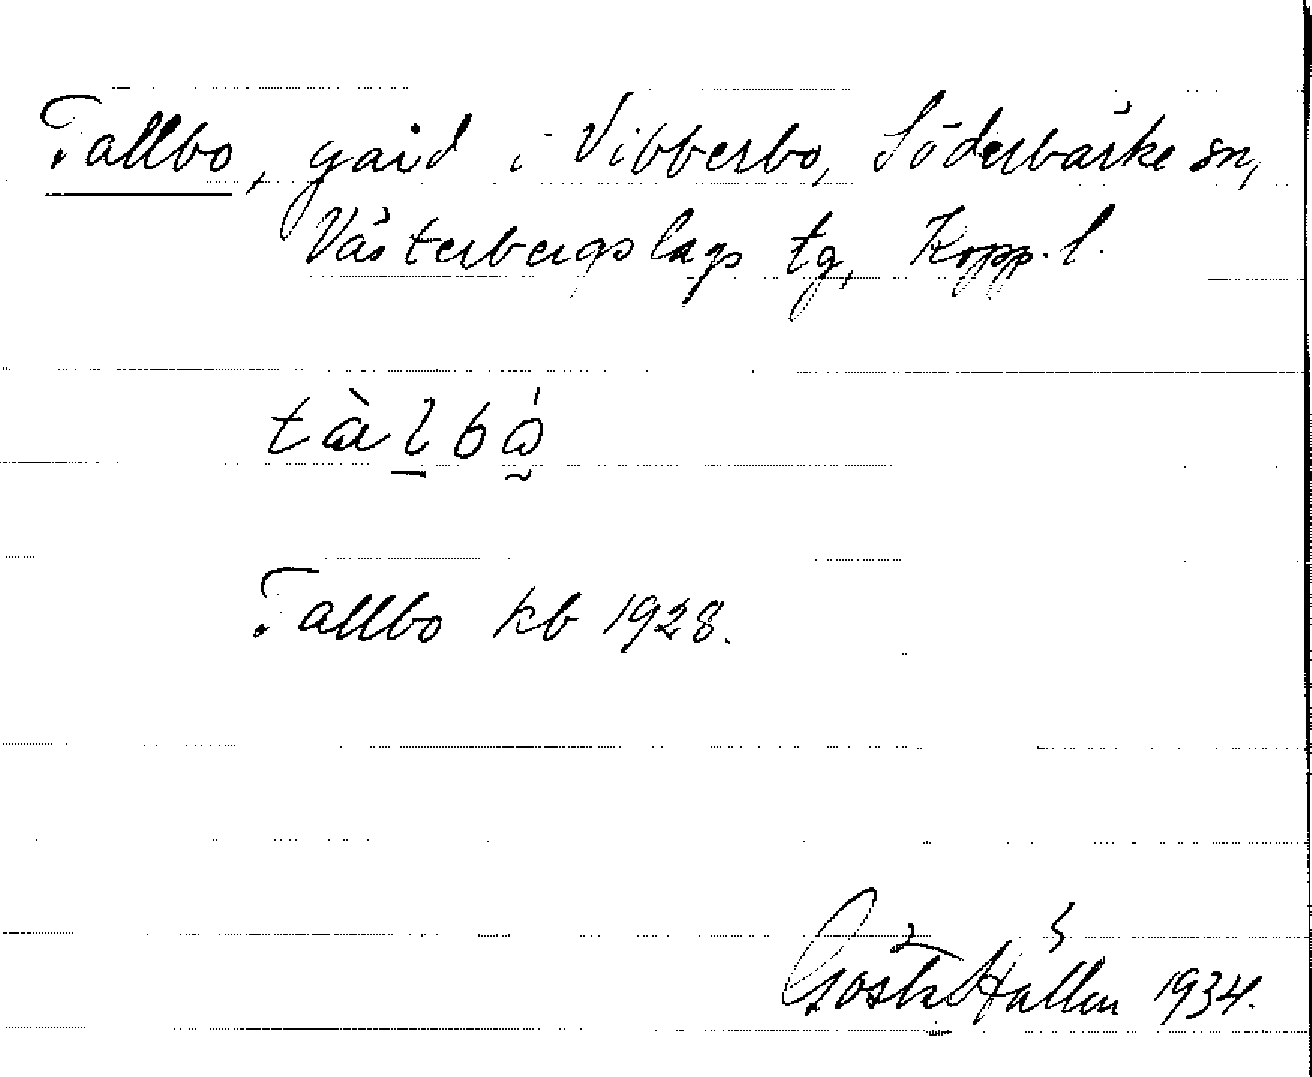 Tallbo, gård i Vibberbo, Söderbärke sn,
Västerbergslags tg, Kopp. l.
tàl̲bó̰
Tallbo kb 1928.
Gösta Hallén 1934.